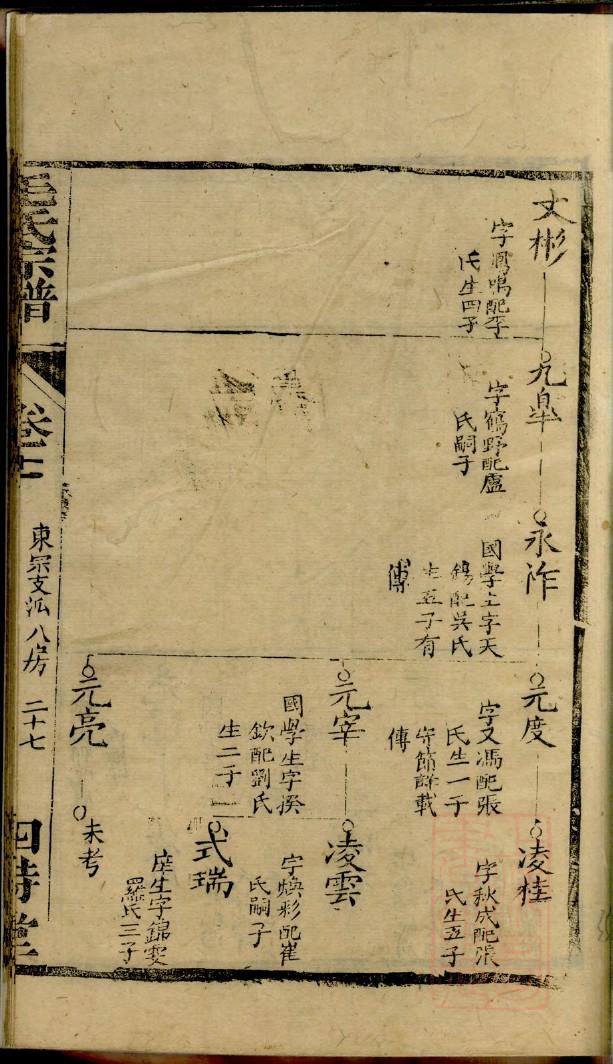 文彬
字鳳鳴配李
氏生四子
元臯
字鶴野配盧
氏嗣子
永祚
國學生字天
錫配吳氏
生五子有
傳
元度
字又馮配張
氏生一子
守節詳載
傳
凌桂
字秋成配張
氏生五子
元宰
國學生字揆
欽配劉氏
生二子
凌雲
字煥彩配崔
氏嗣子
式瑞
庠生字錦雯
羅氏三子
元亮
未考
氏宗譜
卷十
東宗支派八房
二十七
四時堂